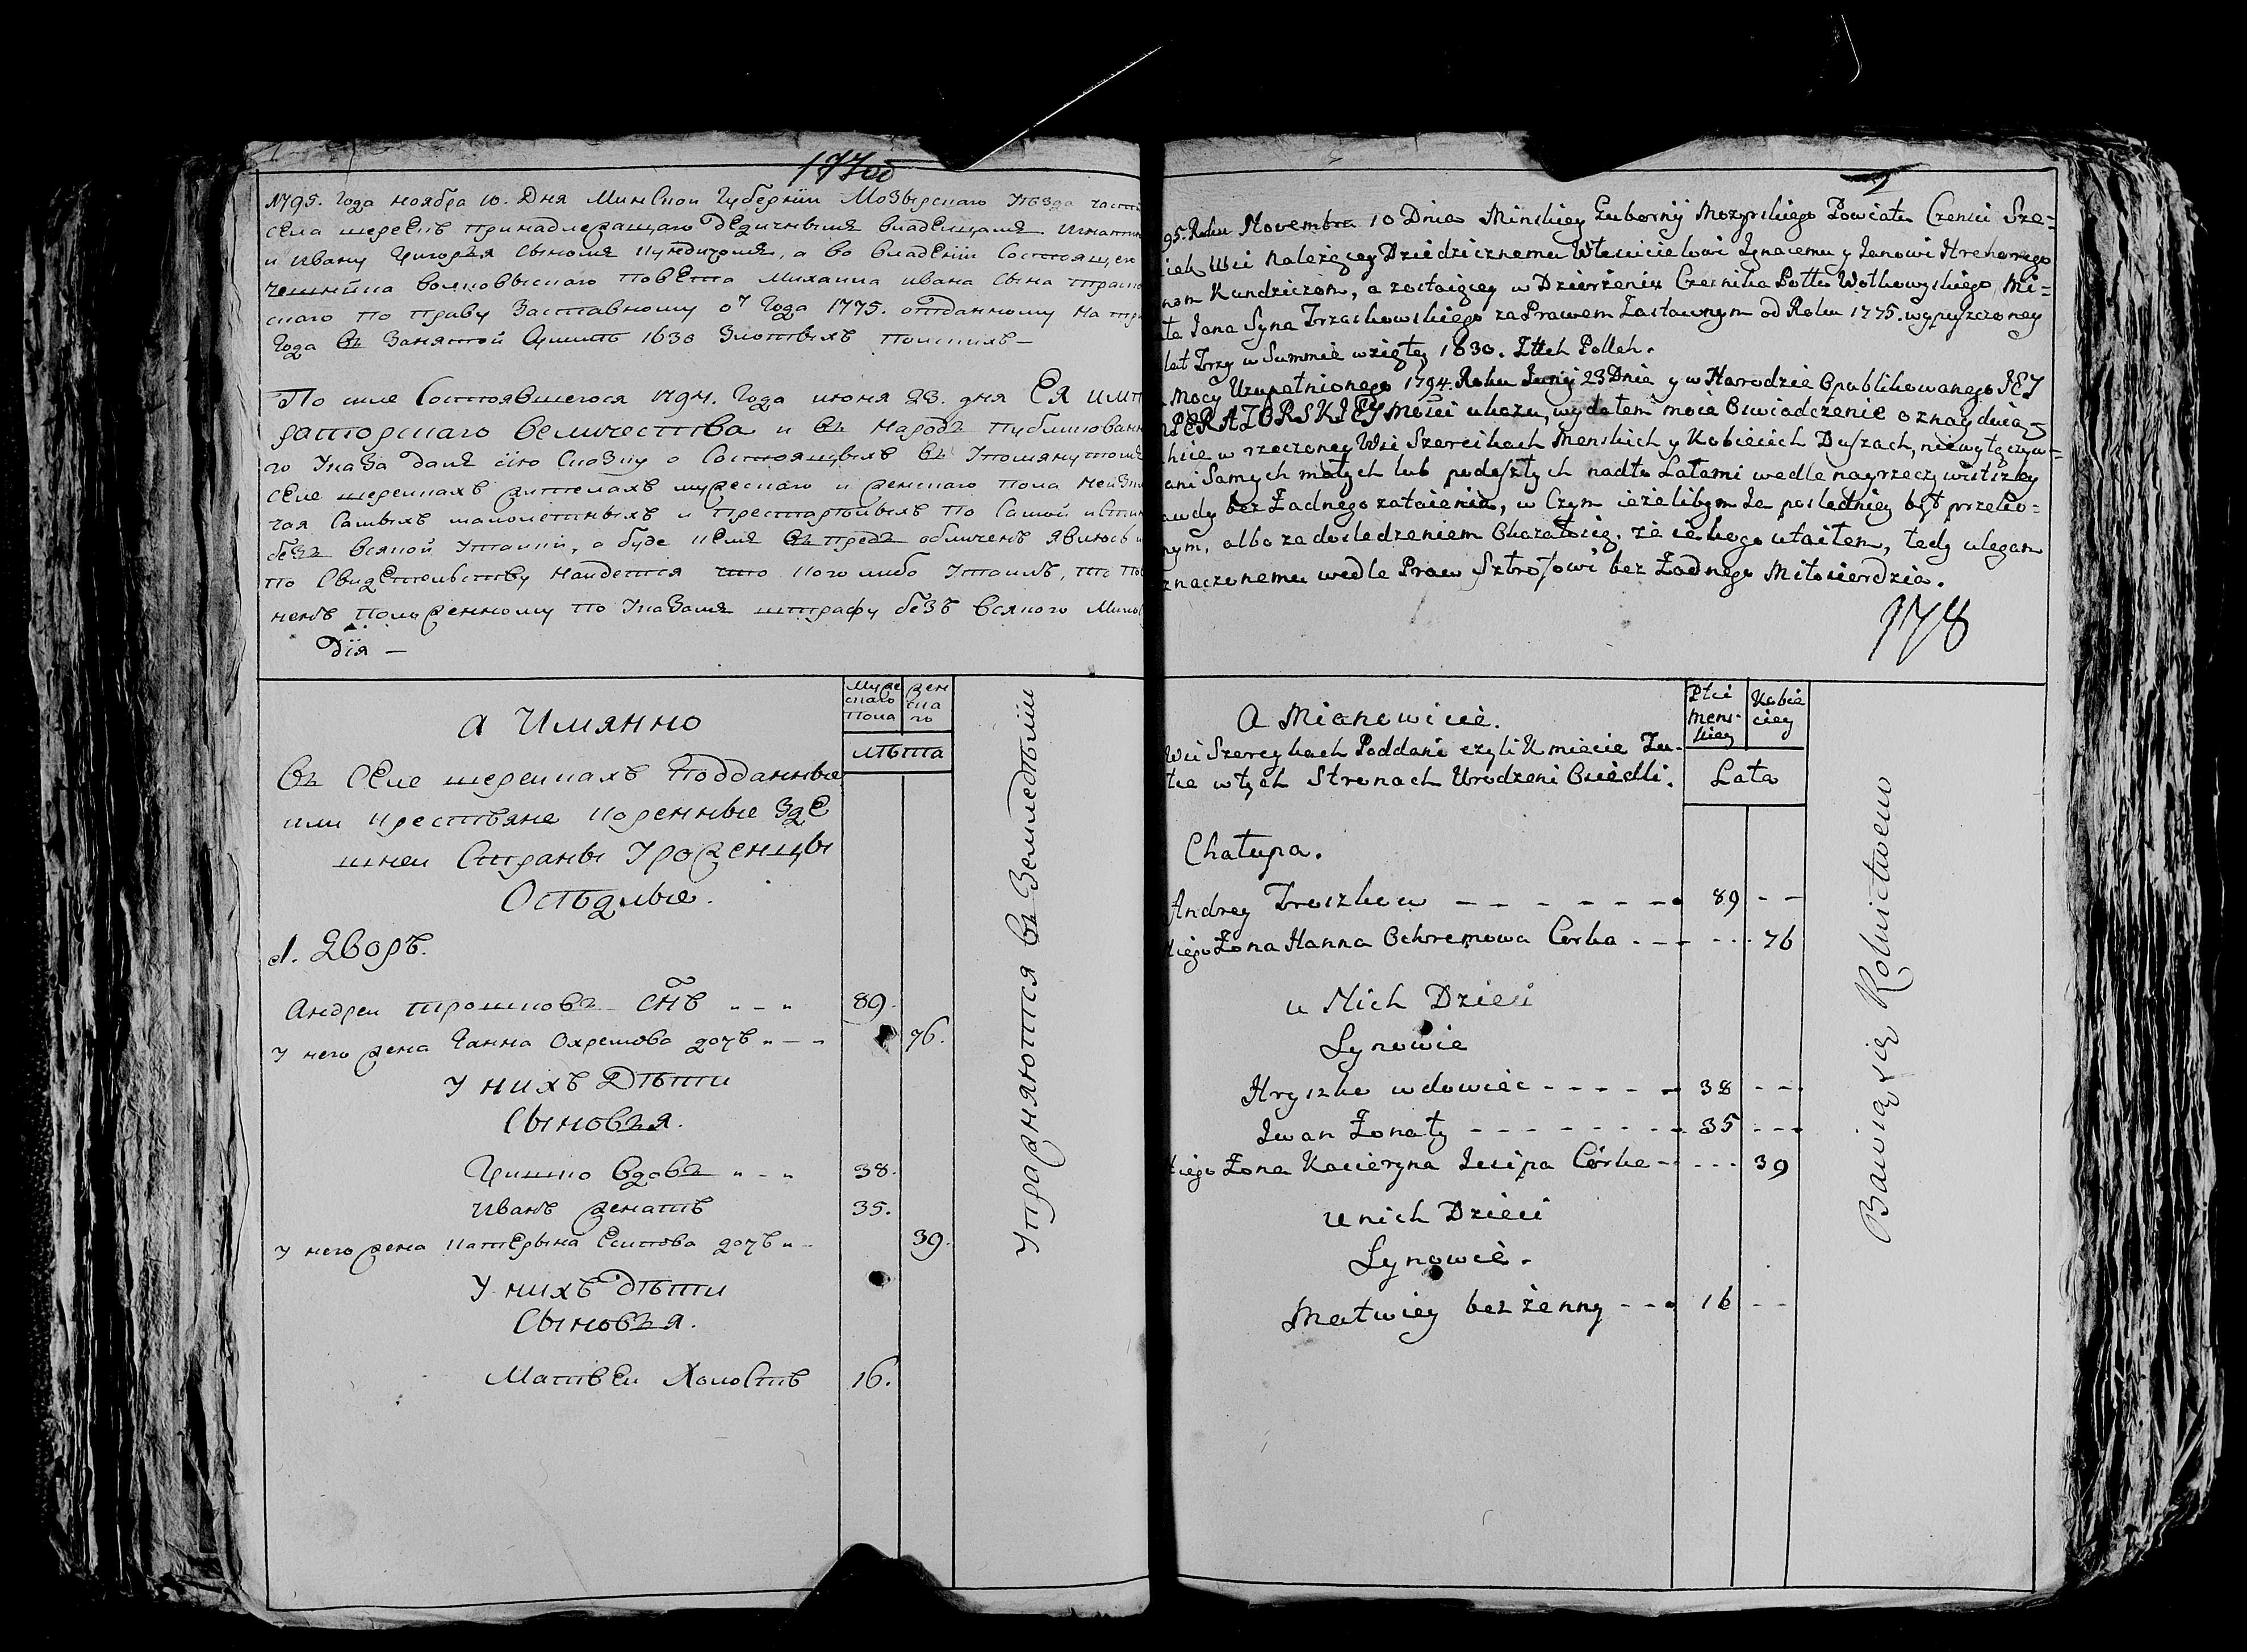 1795. Года ноября 10. Дня Минской Губернїи Мозырскаго Уѣзда части
села шереекъ принадлежащаго дедичнымъ владелцамъ Игнатию
и Ивану Григорья сыномъ Кундичомъ, а во владенїи состоящего
Волковыскаго повета Михаила Ивана сына
скаго по праву заставному от Года 1775. отданному на три
Года въ занятой Сумме 1630 злотыхъ полскихъ —
По силе состоявшегося 1794. Года июня 23. дня Ея импе
раторскаго величества и въ народъ публикованна
го Указа даемъ сїю сказку о состоящихъ въ Упомянутомъ
селе шереикахъ жителахъ мужескаго и женскаго пола неизклю
чая самыхъ малолетныхъ и престарѣлыхъ по самой истин
безъ всякой утайки, а буде кемъ въ предъ обличенъ явлюсь и
по свидетельству найдется что кого либо утаилъ, то пов
ненъ положенному по указамъ штрафу безъ всякого милос
дїя —
а Имянно
Мужескаго пола
женскаго
лѣта
въ селе шереикахъ подданные
или крестьяне коренные зде
шней страны уроженцы
Осѣдлые.
1. Дворъ.
Андреи трошковъ снъ 89.
У него жена Ганна Охремова дочь 76.
У нихъ Дѣти
Сыновья.
Гришко вдовъ 38.
Иванъ женатъ 35.
У него жена Катерына Есипова дочь 39.
У нихъ дѣти
Сыновья.
Матвеи Холостъ 16.
Упражняются въ Земледѣлїи
95. Roku Novembra 10 Dnia Minskiey Gubernij Mozyrskiego Powiatu Czenści Sze=
ikach Wsi Należącey Dziedzicznemu Właścicielowi Jgnacemu y Janowi Hrehorego
nom Kundziczom, a zostaiącey w Dzierżeniu Czesnika Pottu Wołkowyskiego, Mi=
ła Jana Syna Trzaskowskiego za Prawem Zastawnym od Roku 1775. wypuszczoney
lat Trzy w Summie wziętey 1630. Złłch Pollch.
Mocy Uzupełnionego 1794. Roku Junij 23 Dnia y w Narodzie Opublikowanego JEY
PERATORSKIEY Mości ukazu, wydałem moie Oswiadczenie o znayduią=
hsie w rzeczoney Wsi Szereikach Menskich y Kobiecich Duszach, niewyłączyw=
ani Samych małych lub podeszłych nadto Latami wedle nayrzeczywistszey
awdy bez Żadnego zataienia, w Czym ieżelibym Ja posledniey był przeko=
nym, albo za dosledzeniem Okazałosię, że ia kogo utaiłem, tedy ulegam
znaczonemu wedle Praw Sztrofowi bez Żadnego Miłosierdzia.
178
A Mianowicie.
Płci Menskiey
Kobieciey
Lata
Wsi Szereykach Poddani czyli Kmiecie Tu-
tie w tych Stronach Urodzeni Osiedli.
Chałupa.
Andrey Troszkow 89
Niego Żona Hanna Ochremowa Corka 76
u Nich Dzieci
Synowie
Hryszko wdowiec 38
Jwan Żonaty 35
Niego Żona Kacieryna Jesipa Córka 39
u nich Dzieci
Synowie.
Matwiey bezżenny 16
Bawią się Rolnictwem